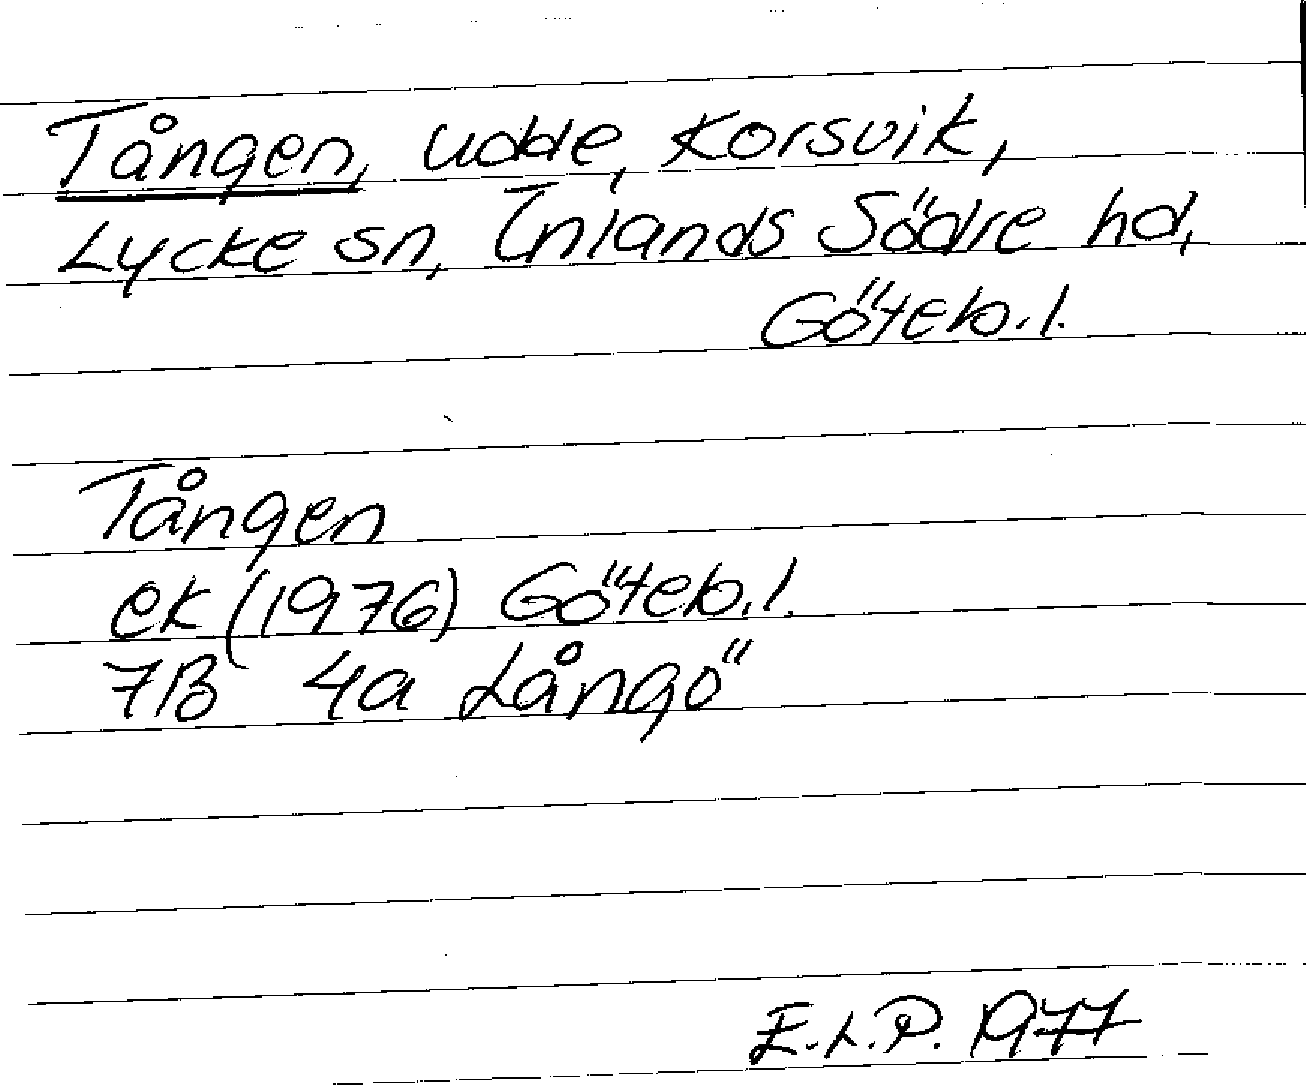 Tången, udde, Korsvik,
Lycke sn, Inlands Södre hd,
Göteb.l.
Tången
ek (1976) Göteb.l.
7B 4a Långö
E.L.P. 1977